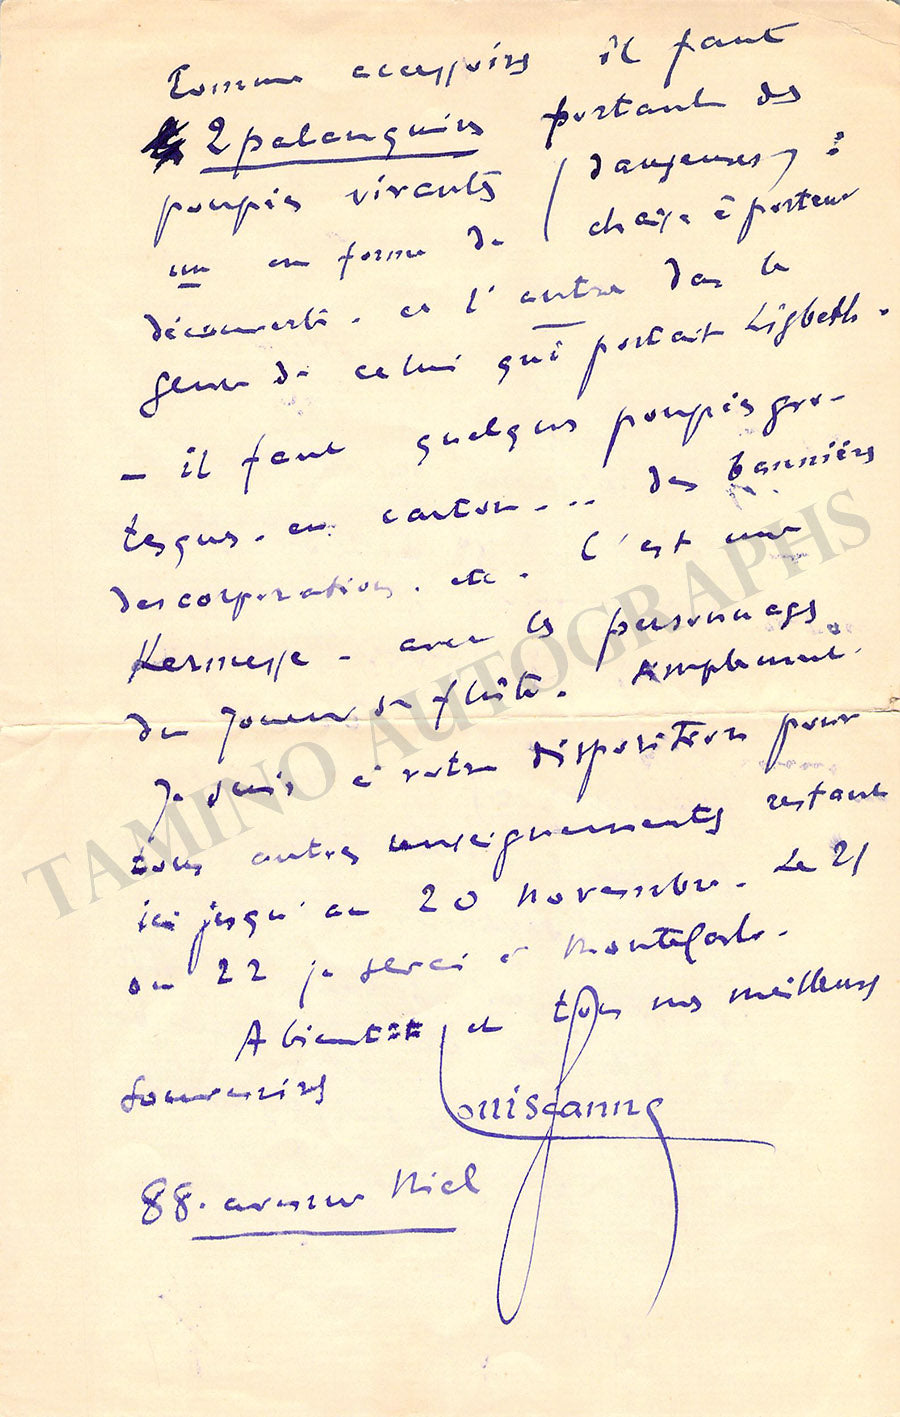 Comme accessoires il faut
2 palanquins portant des
poupées vivants (danseuses) :
un en forme de chaise à porteur
découverte. et l'autre dans le
genre de celui qui portait Lisbeth.
- il faut quelques poupées gro-
tesques. en carton... des bannières
des corporations. etc. C'est une
Kermesse. avec les personnages
du Joueur de flûte. simplement.
Je suis à votre disposition pour
tous autres renseignements restant
ici jusqu'au 20 novembre. Le 21
ou 22 je serai à MonteCarlo.
A bientôt et tous nos meilleurs
souvenirs
Louis Ganne
88. avenue Niel
TAMINO AUTOGRAPHS